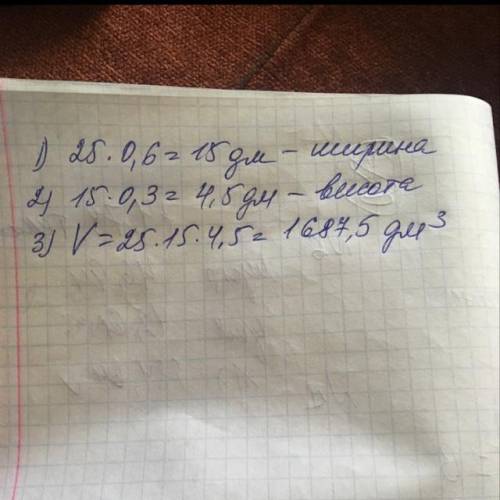 1) 25 · 0,6 = 15 дм – ширина
2) 15 · 0,3 = 4,5 дм – высота
3) V = 25 · 15 · 4,5 = 1687,5 дм³